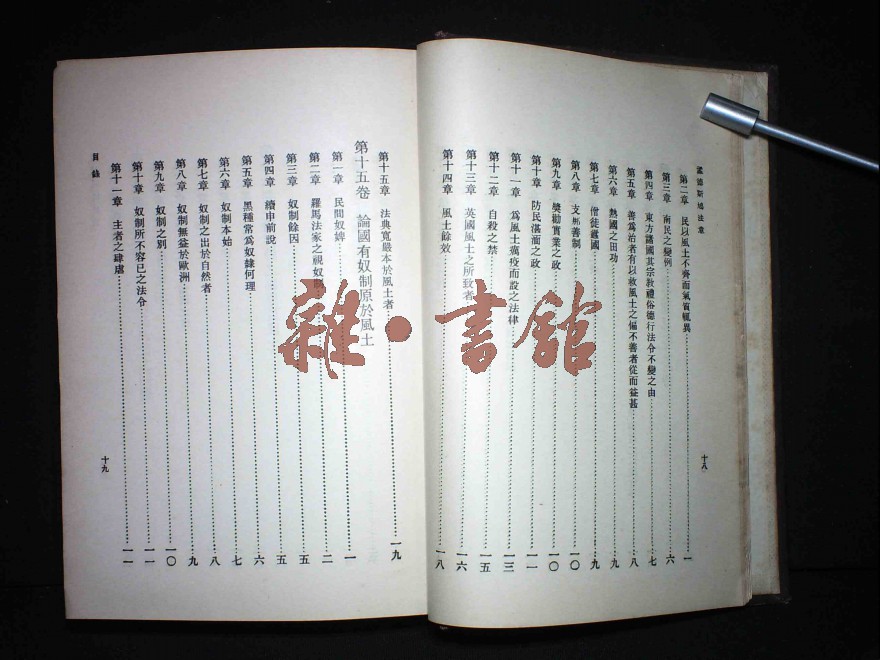 孟德斯鳩法意
第二章 民以風土不齊而氣質輒異 一
第三章 南民之變例 六
第四章 東方諸國其宗教禮俗德行法令不變之由 七
第五章 善為治者有以救風土之偏不善者從而益甚 八
第六章 熱國之田功 九
第七章 僧徒蠹國 九
第八章 支那善制 一〇
第九章 獎勸實業之政 一〇
第十章 防民湛湎之政 一一
第十一章 為風土癘疫而設之法律 一三
第十二章 自殺之禁 一五
第十三章 英國風土之所致者 一六
第十四章 風土餘效 一八
十八
第十五章 法典寬嚴本於風土者 一九
第十五卷 論國有奴制原於風土
第一章 民間奴婢 一
第二章 羅馬法家之視奴 二
第三章 奴制餘因 五
第四章 續申前說 五
第五章 黑種常為奴隸何理 六
第六章 奴制本始 七
第七章 奴制之出於自然者 八
第八章 奴制無益於歐洲 九
第九章 奴制之別 一〇
第十章 奴制所不容已之法令 一一
第十一章 主者之肆虐 一一
目錄
十九
雜·書館